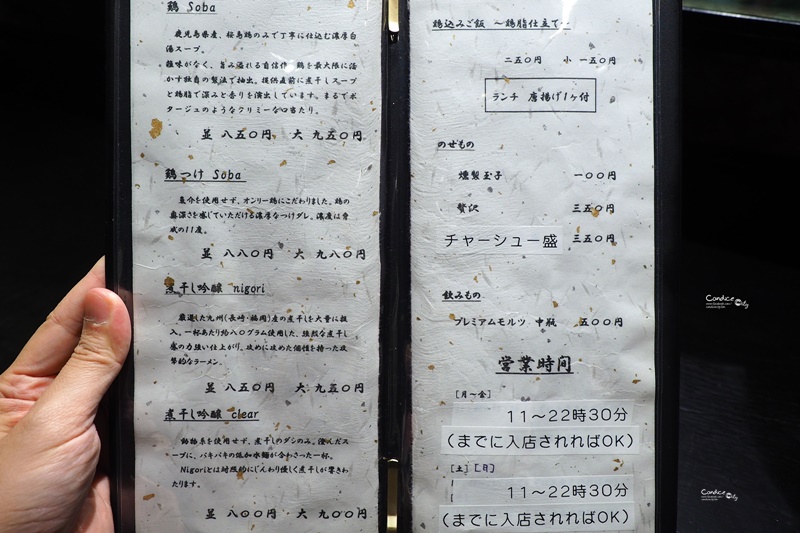 鶏 Soba
鹿児島県産、桜島鶏のみで丁寧に仕込む濃厚白
湯スープ。
雑味がなく、旨み溢れる自信作 鶏を最大限に活
かす独自の製法で抽出。提供直前に煮干しスープ
と鶏脂で深みと香りを演出しています。まるでポ
タージュのようなクリミーな口当たり。
並 八五〇円 大 九五〇円
鶏つけ Soba
魚介を使用せず、オンリー鶏にこだわりました。鶏の
奥深さを感じていただける濃厚なつけダレ。濃度は脅
威の11度。
並 八八〇円 大 九八〇円
煮干し吟醸 nigori
厳選した九州(長崎・福岡)産の煮干しを大量に投
入。一杯あたり約八〇グラム使用した、強烈な煮干し
感の力強い仕上がり。攻めに攻めた個性を持った攻
撃的なラーメン。
並 八五〇円 大 九五〇円
煮干し吟醸 clear
動物系を使用せず、煮干しのダシのみ。澄んだス
ープに、パキパキの低加水麺が合わさった一杯。
Nigoriとは対照的にじんわり優しく煮干しが響きわ
たります。
並 八〇〇円 大 九〇〇円
鶏込みご飯 ～鶏脂仕立て～
二五〇円 小 一五〇円
ランチ 唐揚げ1ヶ付
のせもの
燻製玉子 一〇〇円
贅沢 三五〇円
チャーシュー盛 三五〇円
飲みもの
プレミアムモルツ 中瓶 五〇〇円
営業時間
[月～金]
11～22時30分
(までに入店されればOK)
[土] [日]
11～22時30分
(までに入店されればOK)
Candice
City
Candice
City